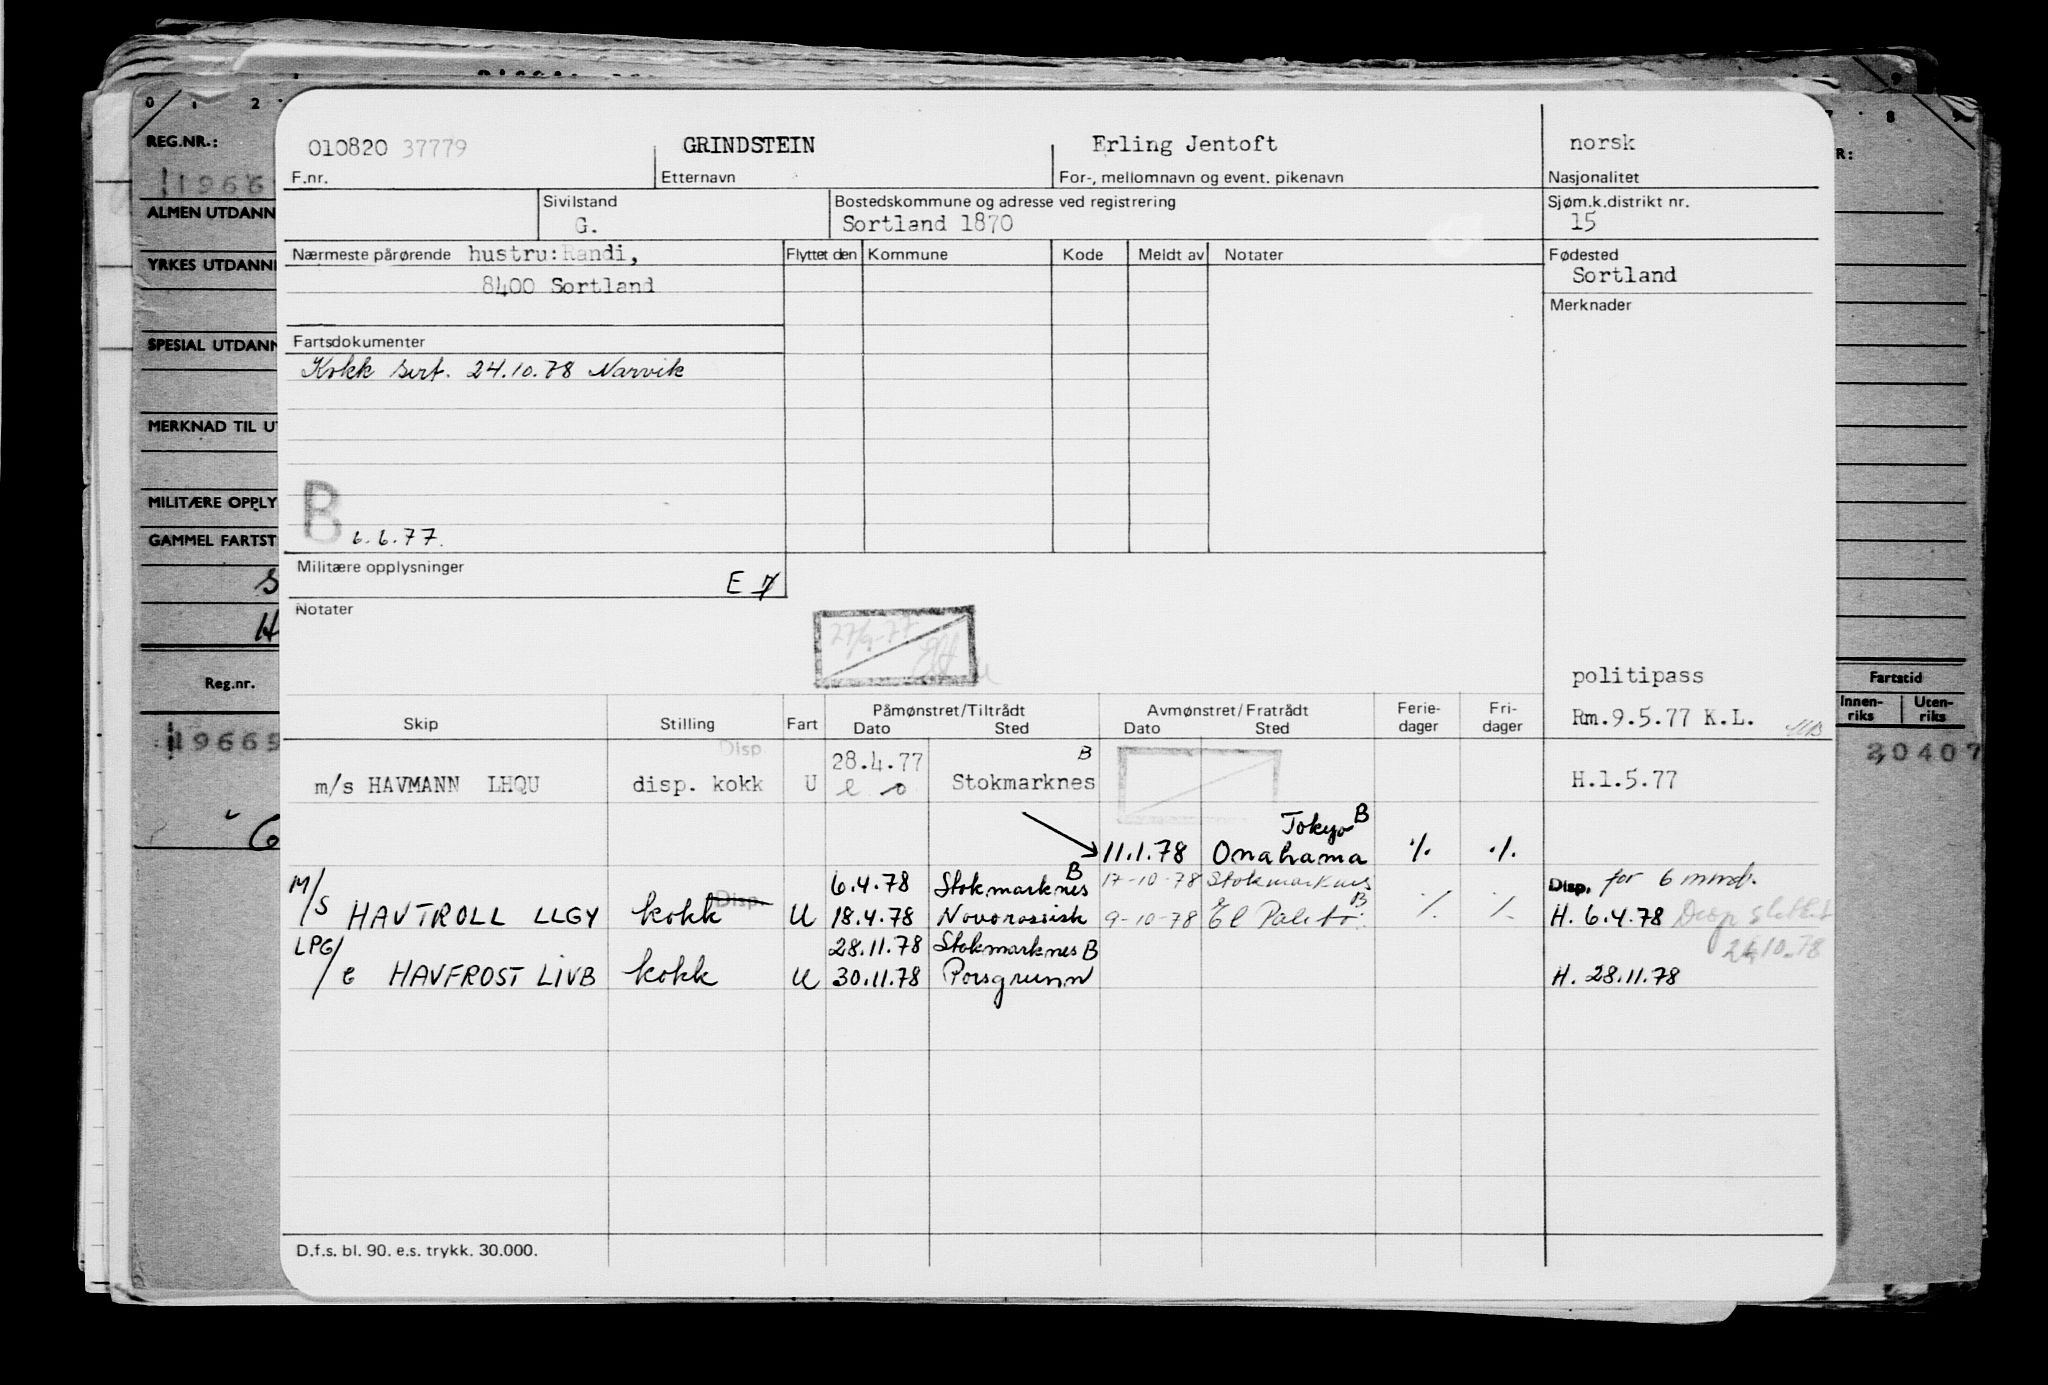 0 1 2 7 8 9
REG.NR.:
ALMEN UTDANN
YRKES UTDANNI
SPESIAL UTDANN
MERKNAD TIL UT
MILITÆRE OPPLY
GAMMEL FARTST
Reg.nr.
19665
Fartstid
Innen-riks Uten-riks
20407
010820 37779 GRINDSTEIN Erling Jentoft norsk
F.nr. Etternavn For-, mellomnavn og event. pikenavn Nasjonalitet
Sivilstand Bostedskommune og adresse ved registrering Sjøm.k.distrikt nr.
G. Sortland 1870 15
Nærmeste pårørende hustru: Randi, Flyttet den Kommune Kode Meldt av Notater Fødested
8400 Sortland Sortland
Merknader
Fartsdokumenter
Kokk sert. 24.10.78 Narvik
B 6.6.77.
Militære opplysninger E 7
Notater
27/9-77
politipass
Rm.9.5.77 K.L.
Skip Stilling Fart Påmønstret/Tiltrådt Avmønstret/Fratrådt Ferie-dager Fri-dager
Dato Sted Dato Sted
Disp. 28.4.77 B
m/s HAVMANN LHQU disp. kokk U Stokmarknes H.1.5.77
Tokyo B
11.1.78 Onahama ·/. ·/.
M/S 6.4.78 Stokmarknes B 17-10-78 Stokmarknes Disp. for 6 mnd.
HAVTROLL LLGY kokk Disp. U 18.4.78 Novorossisk 9-10-78 El Palito B ·/. ·/. H. 6.4.78 Disp slettet
LPG/ 28.11.78 Stokmarknes B 24.10.78
c HAVFROST LIVB kokk U 30.11.78 Porsgrunn H. 28.11.78
D.f.s. bl. 90. e.s. trykk. 30.000.